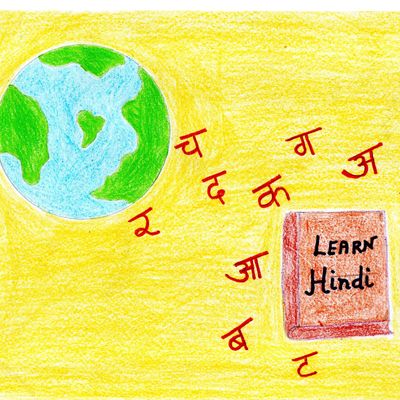 च
ग
अ
द
क
र
LEARN
Hindi
आ
ब
ट